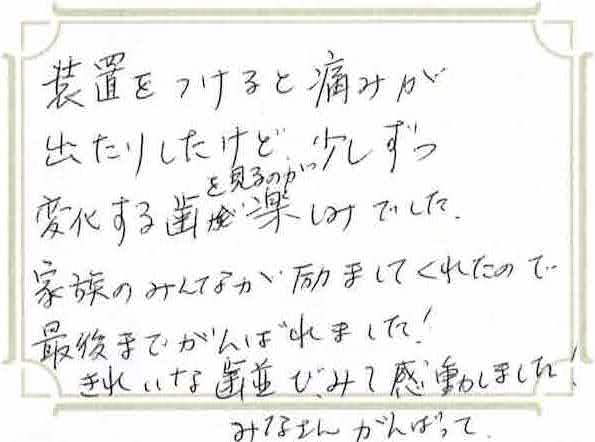 装置をつけると痛みが
出たりしたけど、少しずつ
変化する歯を見るのが楽しみでした。
家族のみんなが励ましてくれたので
最後までがんばれました!
きれいな歯並びみて感動しました!
みなさんがんばって